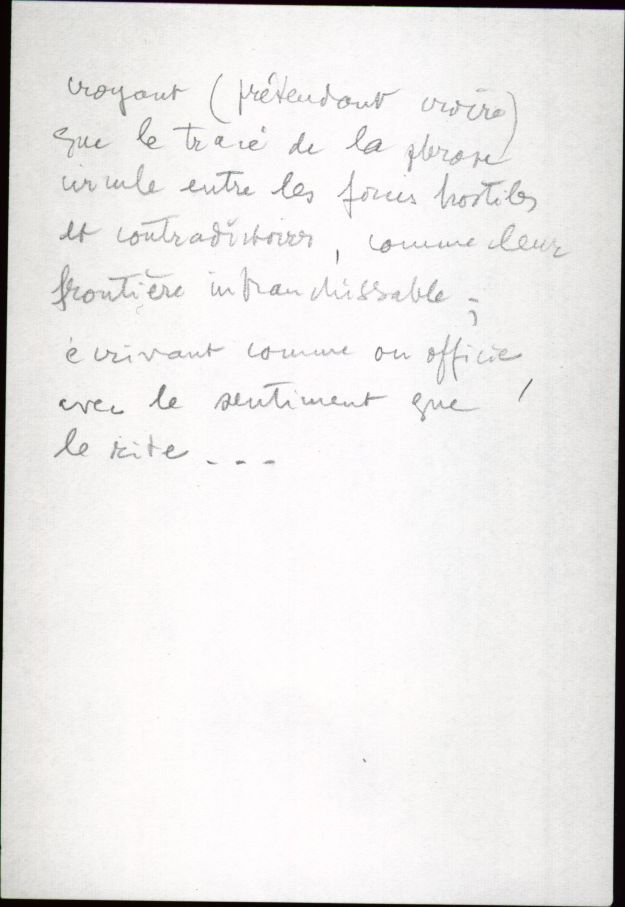 croyant (prétendant croire)
que le tracé de la phrase
circule entre les forces hostiles
et contradictoires, comme leur
frontière infranchissable ;
écrivant comme on officie,
avec le sentiment que
le rite ...